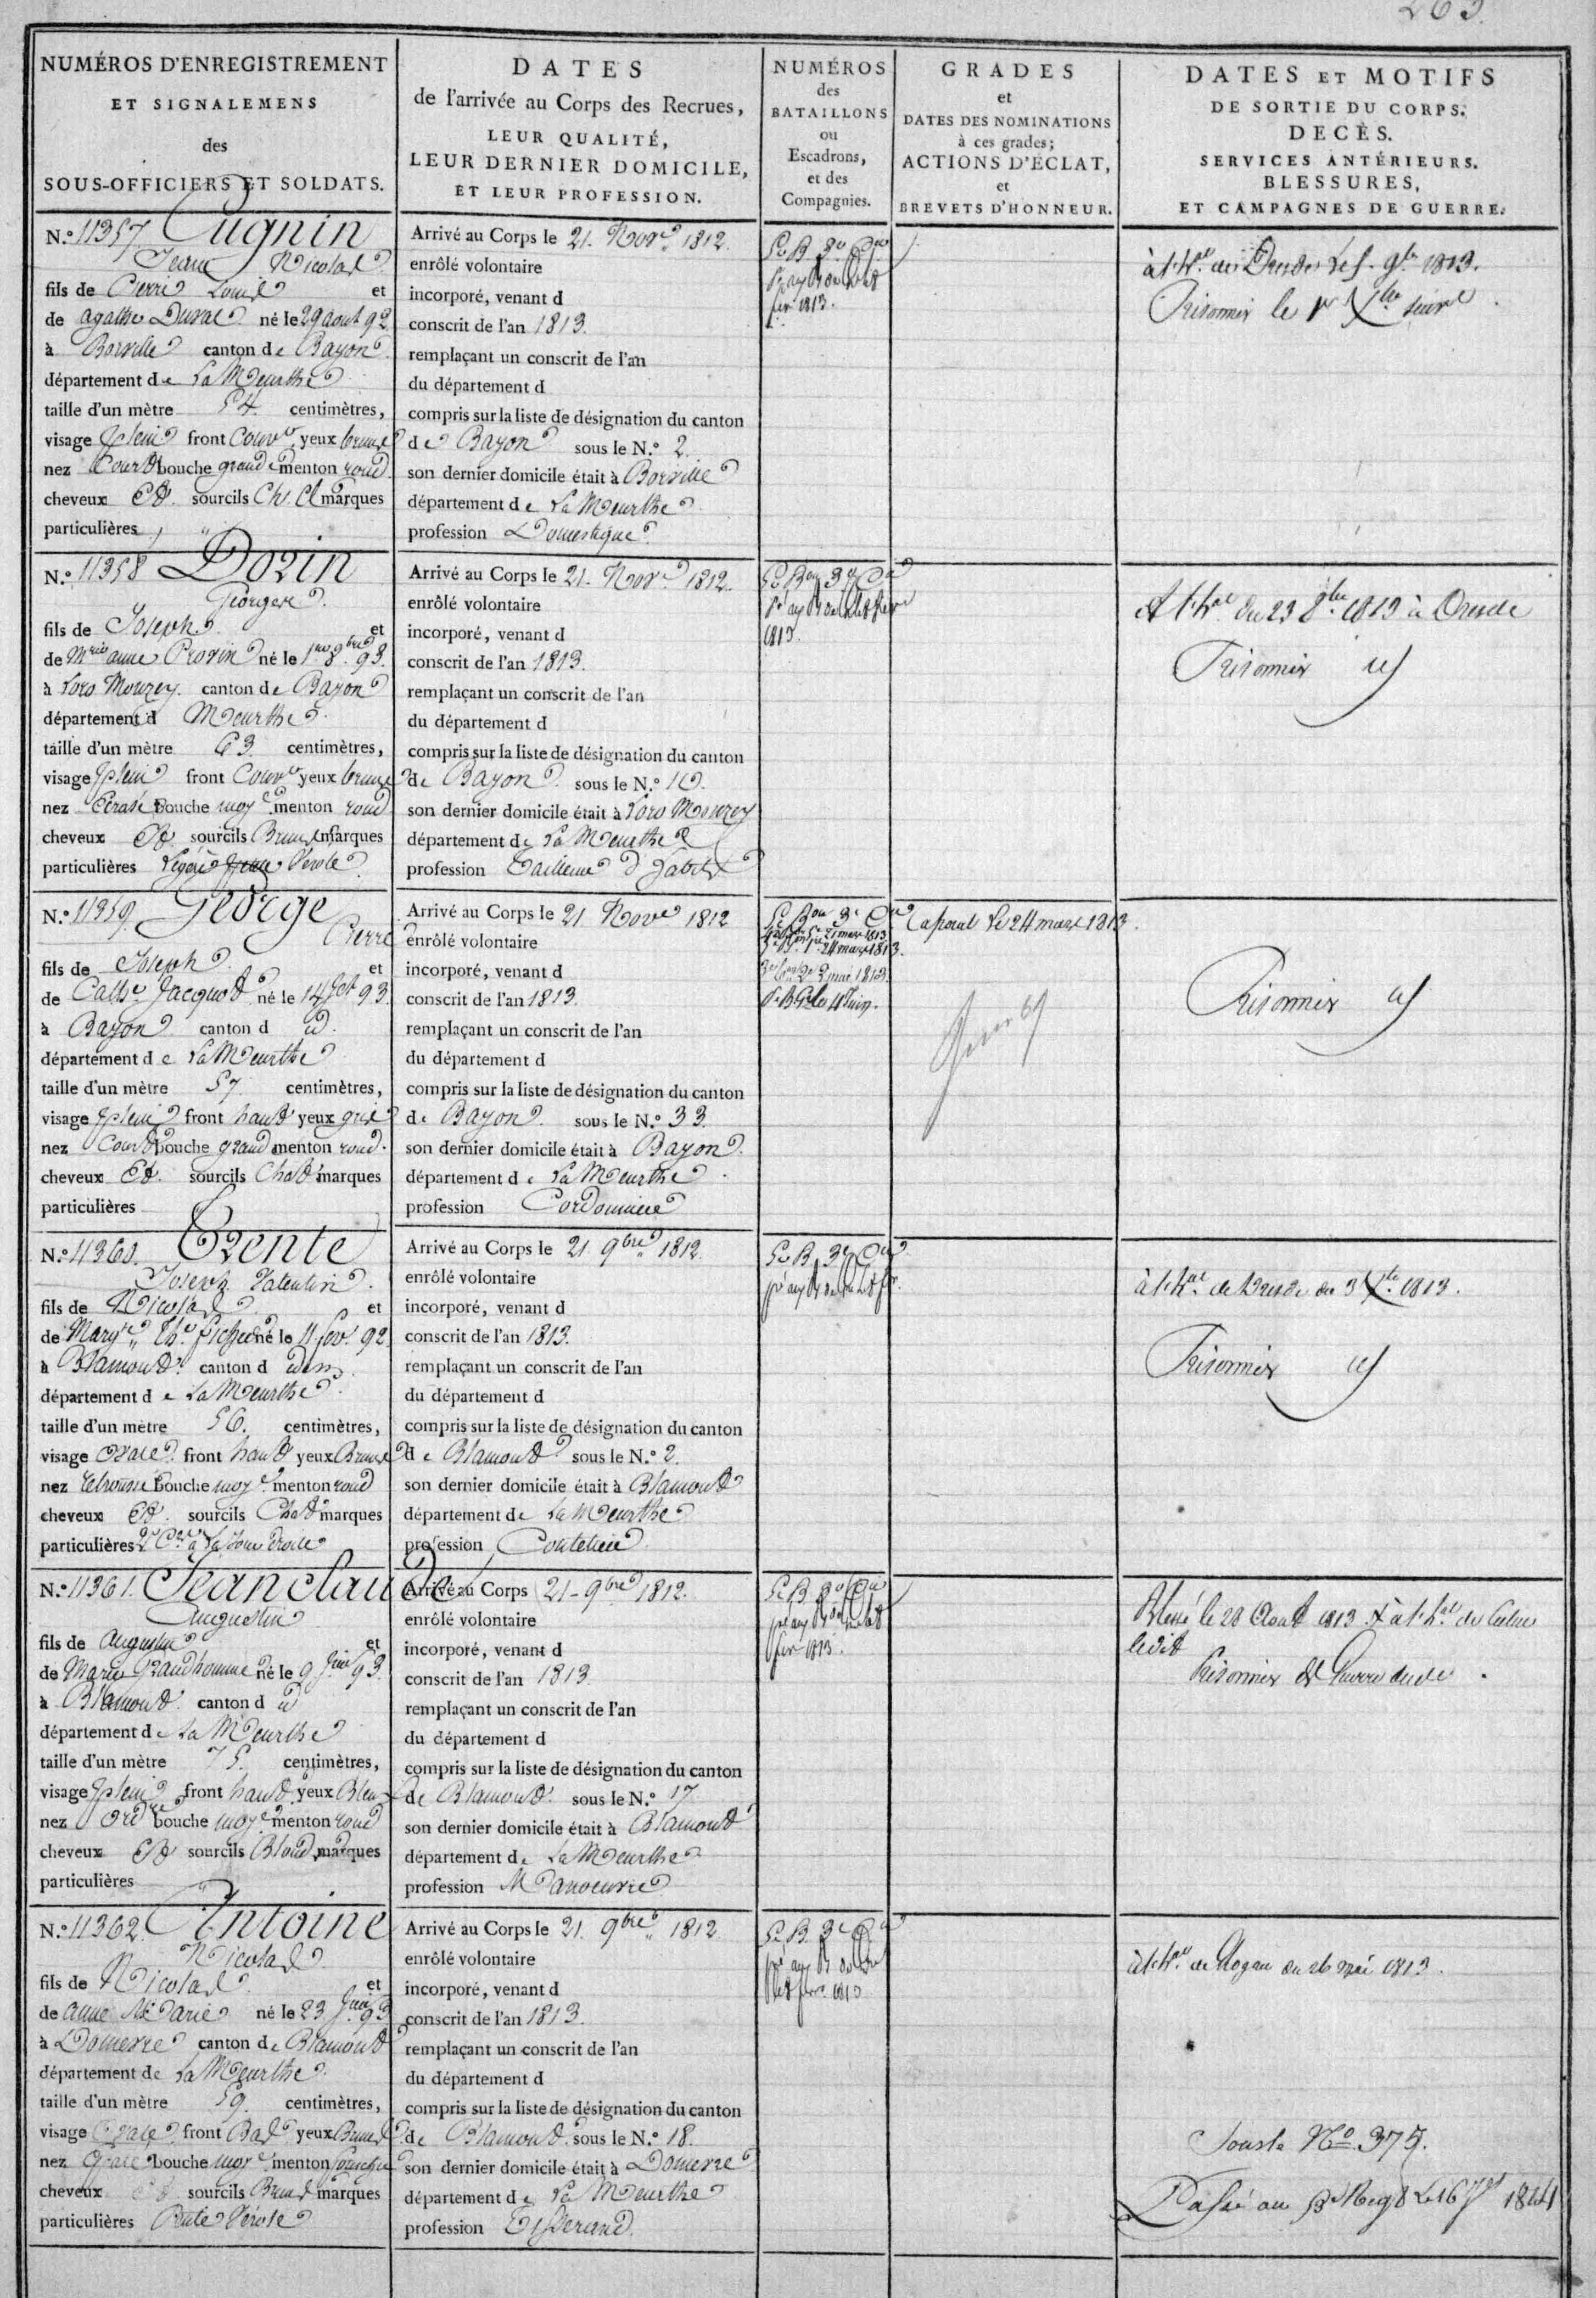 263.
NUMÉROS D'ENREGISTREMENT
ET SIGNALEMENS
des
SOUS-OFFICIERS ET SOLDATS.
DATES
de l'arrivée au Corps des Recrues,
LEUR QUALITÉ,
LEUR DERNIER DOMICILE,
ET LEUR PROFESSION.
NUMÉROS
des
BATAILLONS
ou
Escadrons,
et des
Compagnies.
GRADES
et
DATES DES NOMINATIONS
à ces grades;
ACTIONS D'ÉCLAT,
et
BREVETS D'HONNEUR.
DATES ET MOTIFS
DE SORTIE DU CORPS.
DECÈS.
SERVICES ANTÉRIEURS.
BLESSURES,
ET CAMPAGNES DE GUERRE.
N.° 11357 Cugnin
Jean Nicolas
fils de Pierre Louis et
de agathe Duval né le 29 aout 92
à Borville canton de Bayon
département de La Meurthe
taille d'un mètre 54 centimètres,
visage plein front Couv yeux bruns
nez Court bouche grande menton rond
cheveux et sourcils Ch. Cl marques
particulières
Arrivé au Corps le 21. Nov.e 1812.
enrôlé volontaire
incorporé, venant d
conscrit de l'an 1813.
remplaçant un conscrit de l'an
du département d
compris sur la liste de désignation du canton
de Bayon sous le N.° 2.
son dernier domicile était à Borville
département de La Meurthe
profession Domestique
5e B. 3e Cie
fer 1813.
à l'h.al de Dresde le 5 9bre 1813.
Prisonnier le 1er Xbre suivt
N.° 11358 Dozin
George
fils de Joseph et
de Mrie anne Provin né le 1er 8bre 93.
à Loro Monzey canton de Bayon
département d Meurthe
taille d'un mètre 63 centimètres,
visage plein front Couv yeux bruns
nez Ecrasé bouche moye menton rond
cheveux et sourcils Bruns marques
particulières Légère Vérole
Arrivé au Corps le 21. Nov.e 1812.
enrôlé volontaire
incorporé, venant d
conscrit de l'an 1813.
remplaçant un conscrit de l'an
du département d
compris sur la liste de désignation du canton
de Bayon sous le N.° 10.
son dernier domicile était à Loro Monzey
département de La Meurthe
profession Tailleur d'habits
5e Bon 3e Cie
1813.
A l'h.al du 23 8bre 1813 à Dresde
Prisonnier
N.° 11359. George
Pierre
fils de Joseph et
de Cathe Jacquot né le 14 Jet 93
à Bayon canton d id
département de La Meurthe
taille d'un mètre 57 centimètres,
visage plein front haut yeux gris
nez Court bouche grand menton rond
cheveux et sourcils Chat marques
particulières
Arrivé au Corps le 21 Nov.e 1812
enrôlé volontaire
incorporé, venant d
conscrit de l'an 1813.
remplaçant un conscrit de l'an
du département d
compris sur la liste de désignation du canton
de Bayon sous le N.° 33.
son dernier domicile était à Bayon
département de La Meurthe
profession Cordonnier
5e Bon 3e Cie
21 mars 1813
24 mars 1813.
3 mai 1813
Caporal le 24 mars 1813.
Prisonnier
N.° 11360. Trente
Joseph Valentin
fils de Nicolas et
de Mary né le 11 fev. 92
à Blamont canton d idem
département de La Meurthe
taille d'un mètre 56. centimètres,
visage ovale front haut yeux Bruns
nez retroussé bouche moye menton rond
cheveux et sourcils Chat marques
particulières à la joue droite
Arrivé au Corps le 21 9bre 1812.
enrôlé volontaire
incorporé, venant d
conscrit de l'an 1813.
remplaçant un conscrit de l'an
du département d
compris sur la liste de désignation du canton
de Blamont sous le N.° 2.
son dernier domicile était à Blamont
département de La Meurthe
profession Coutelier
5e B. 3e Cie
à l'h.al de Dresde du 3 Xbre 1813.
Prisonnier
N.° 11361. Jeanclaude
Augustin
fils de Augustin et
de Marie Grandhomme né le 9 Juin 93.
à Blamont canton d id
département de La Meurthe
taille d'un mètre 75. centimètres,
visage plein front haut yeux Bleus
nez ordre bouche moye menton rond
cheveux et sourcils Blond marques
particulières
Arrivé au Corps 21 - 9bre 1812.
enrôlé volontaire
incorporé, venant d
conscrit de l'an 1813.
remplaçant un conscrit de l'an
du département d
compris sur la liste de désignation du canton
de Blamont sous le N.° 17
son dernier domicile était à Blamont
département de La Meurthe
profession Manoeuvre
5e B 3e Cie
fevr 1813.
Blessé le 28 Aout 1813 à l'h.al de
ledit
Prisonnier de Guerre
N.° 11362. Antoine
Nicolas
fils de Nicolas et
de anne Marie né le 23 Juin 93
à Domevre canton de Blamont
département de La Meurthe
taille d'un mètre 59. centimètres,
visage ovale front Bas yeux Bruns
nez bouche moye menton fourchu
cheveux et sourcils Bruns marques
particulières Petite Vérole
Arrivé au Corps le 21. 9bre 1812
enrôlé volontaire
incorporé, venant d
conscrit de l'an 1813.
remplaçant un conscrit de l'an
du département d
compris sur la liste de désignation du canton
de Blamont sous le N.° 18.
son dernier domicile était à Domevre
département de La Meurthe
profession Tisserand
5e B. 3e Cie
fevr. 1813
à l'h.al de Glogau du 26 mai 1813.
Sous le No 375.
Passé au Regt le 16 1814